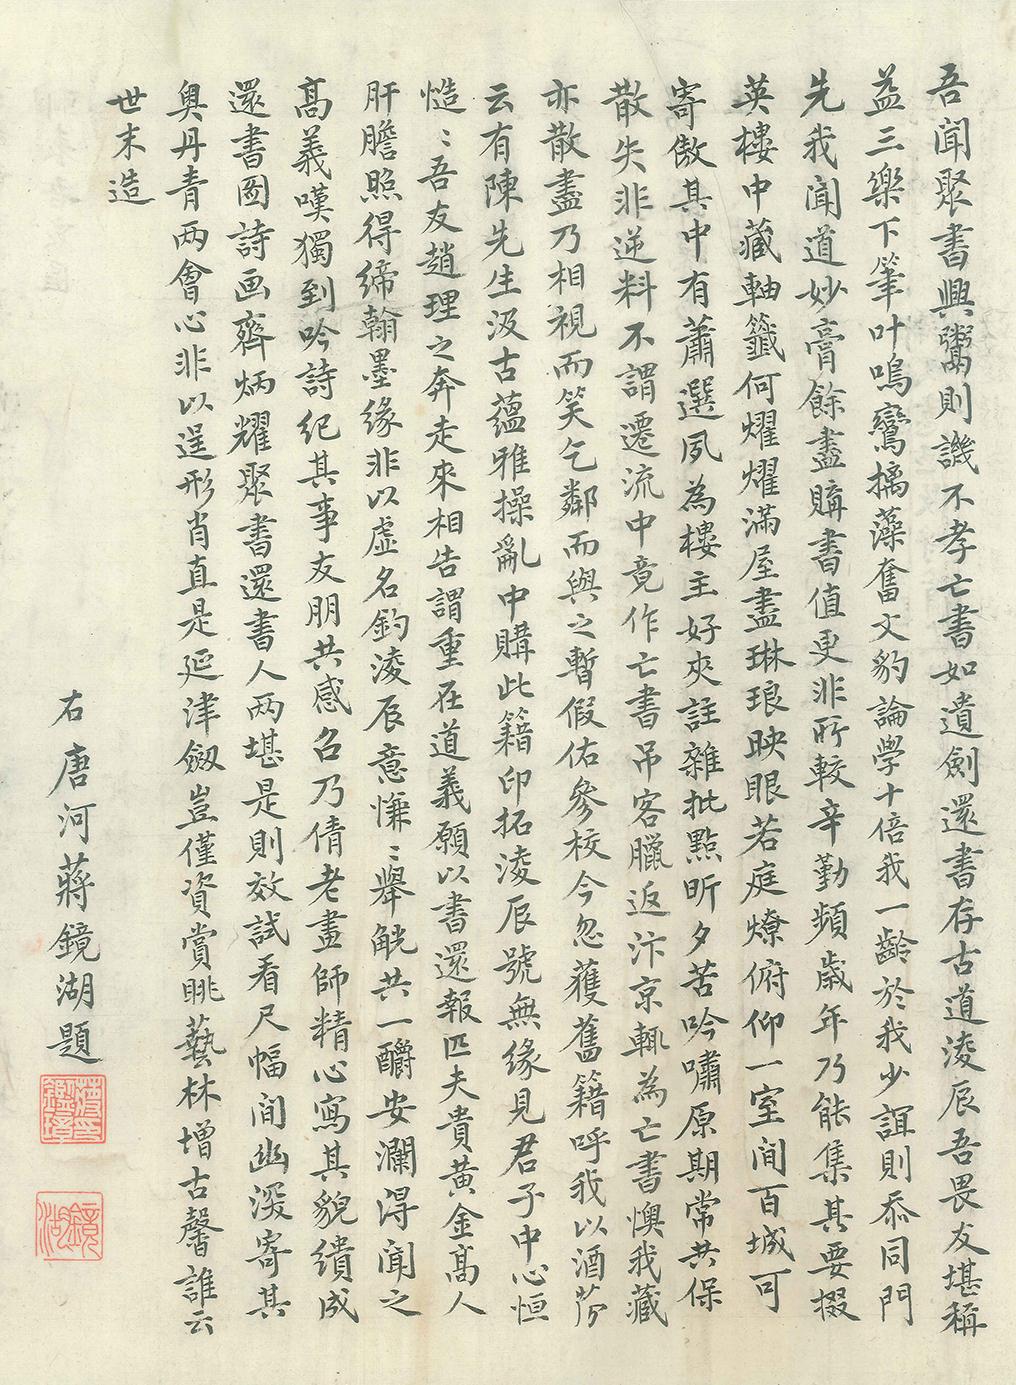 吾聞聚書興鬻則譏不孝亡書如遺劍還書存古道淩辰吾畏友堪稱
益三樂下筆叶鳴鸞摛藻奮文豹論學十倍我一齡於我少誼則忝同門
先我聞道妙膏餘盡購書值更非所較辛勤頻歲年乃能集其要掇
英樓中藏軸籤何燿燿滿屋盡琳琅映眼若庭燎俯仰一室間百城可
寄傲其中有蕭選夙為樓主好夾註雜批點昕夕苦吟嘯原期常共保
散失非逆料不謂遷流中竟作亡書弔客臘返汴京輒為亡書懊我藏
亦散盡乃相視而笑乞鄰而與之暫假佑參校今忽獲舊籍呼我以酒芬
云有陳先生汲古蘊雅操亂中購此籍印拓淩辰號無緣見君子中心恒
慥﹕吾友趙理之奔走來相告謂重在道義願以書還報匹夫貴黃金高人
肝膽照得締翰墨緣非以虛名釣淩辰意慊﹕舉觥共一醻安瀾得聞之
高義嘆獨到吟詩紀其事友朋共感召乃倩老畫師精心寫其貌繢成
還書圖詩画齊炳耀聚書還書人兩堪是則效試看尺幅間幽深寄其
奧丹青兩會心非以逞形肖直是延津劔豈僅資賞眺藝林增古馨誰云
世末造
右唐河蔣鏡湖題
鏡湖